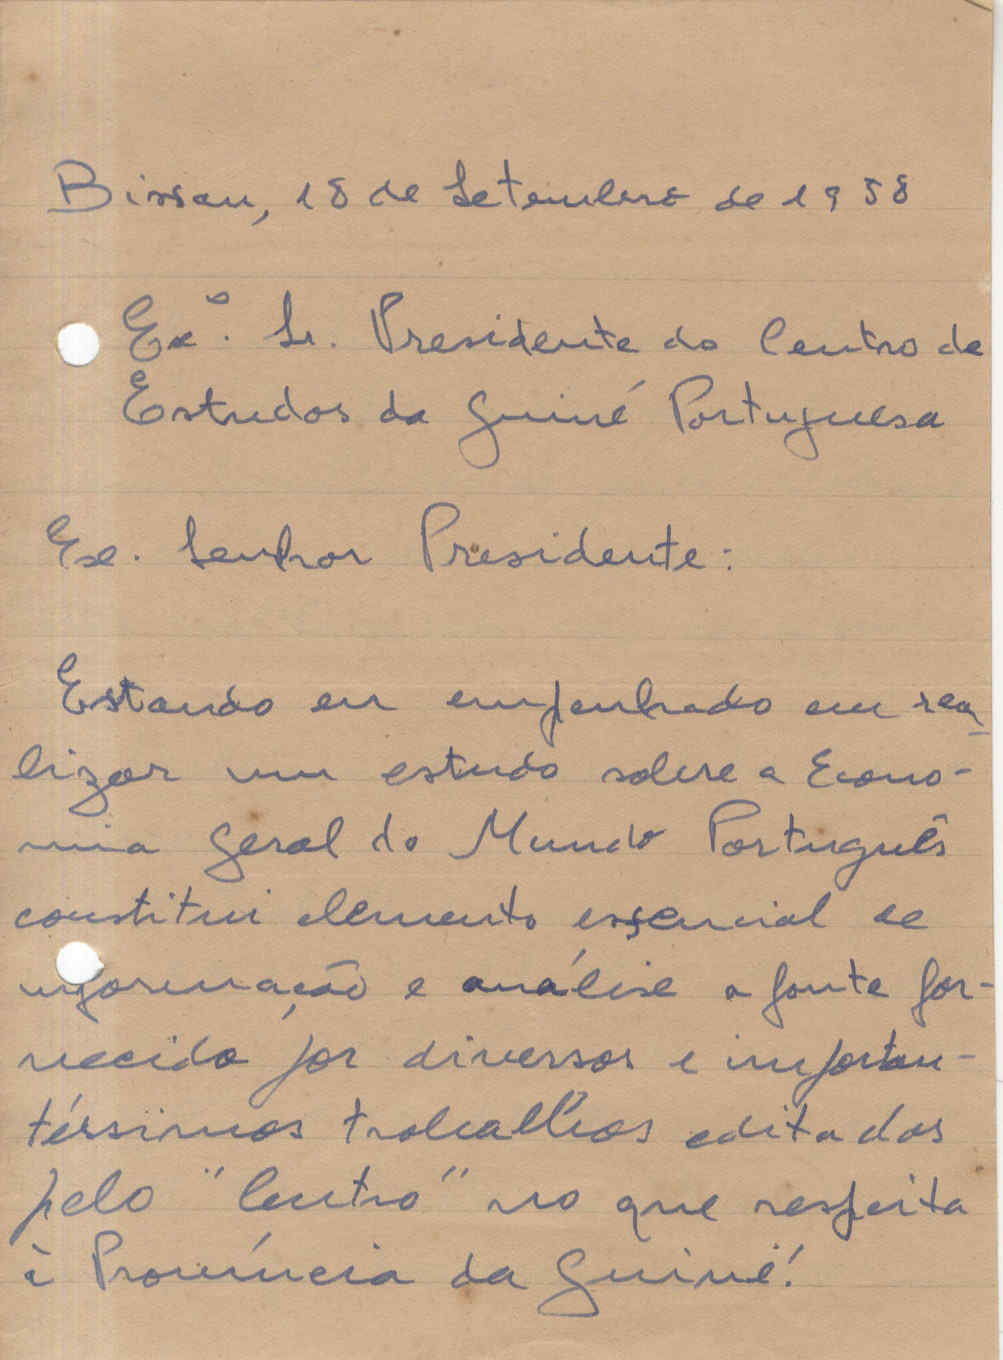 Bissau, 18 de Setembro de 1958
Exº. Sr. Presidente do Centro de
Estudos da Guiné Portuguesa
Ex. Senhor Presidente:
Estando eu empenhado em rea-
lizar um estudo sobre a Econo-
mia geral do Mundo Português
constitui elemento essencial de
informação e análise a fonte for-
necida por diversos e importan-
téssimos trabalhos editados
pelo "Centro" no que respeita
à Província da Guiné.